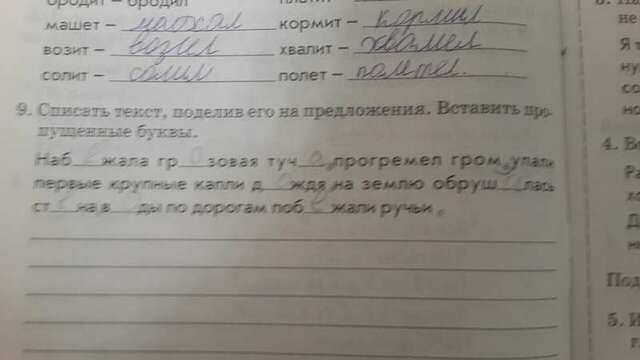 бродит – бродил
машет – махал
кормит – кормил
возит – возил
хвалит –
солит – солил
полет –
9. Списать текст, поделив его на предложения. Вставить про-
пущенные буквы.
Наб_е_жала гр_о_зовая туч_а_ прогремел гром упали
первые крупные капли д_о_ждя на землю обруш_и_лась
ст__на в__ды по дорогам поб_е_жали ручьи.
не
Я т
ну
со
но
4. В
Ра
хо
Д
Под
5. И